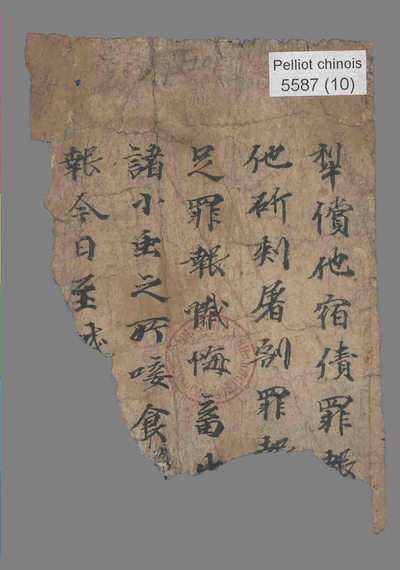 Pelliot chinois
5587 (10)
犁償他宿債罪報
他斫刺屠割罪報
足罪報懺悔畜
諸小虫之所唼食
報今日至